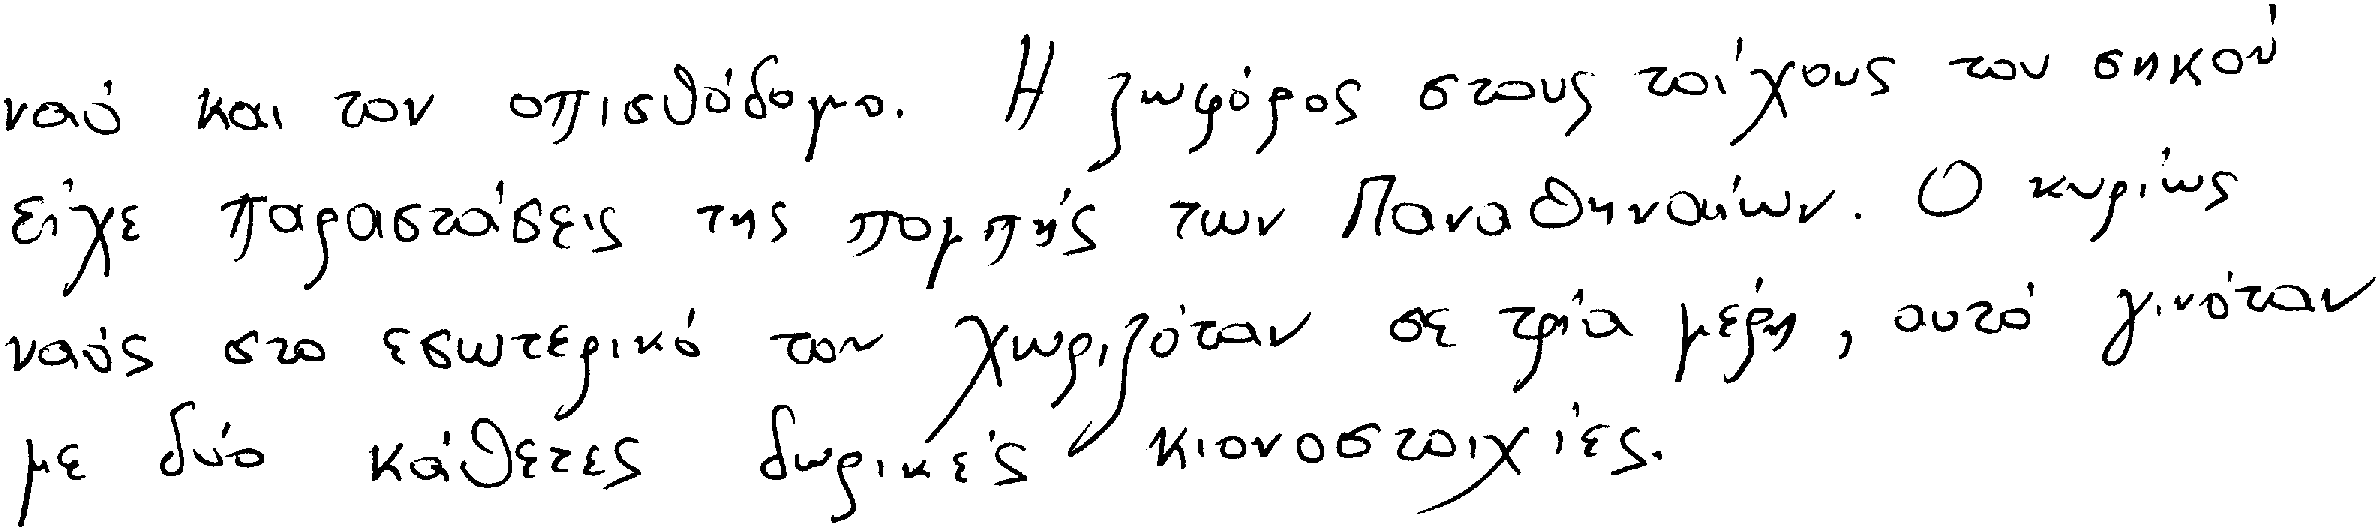 ναό και τον οπισθόδομο. Η ζωφόρος στους τοίχους του σηκού
είχε παραστάσεις της πομπής των Παναθηναίων. Ο κυρίως
ναός στο εσωτερικό του χωριζόταν σε τρία μέρη, αυτό γινόταν
με δύο κάθετες δωρικές κιονοστοιχίες.